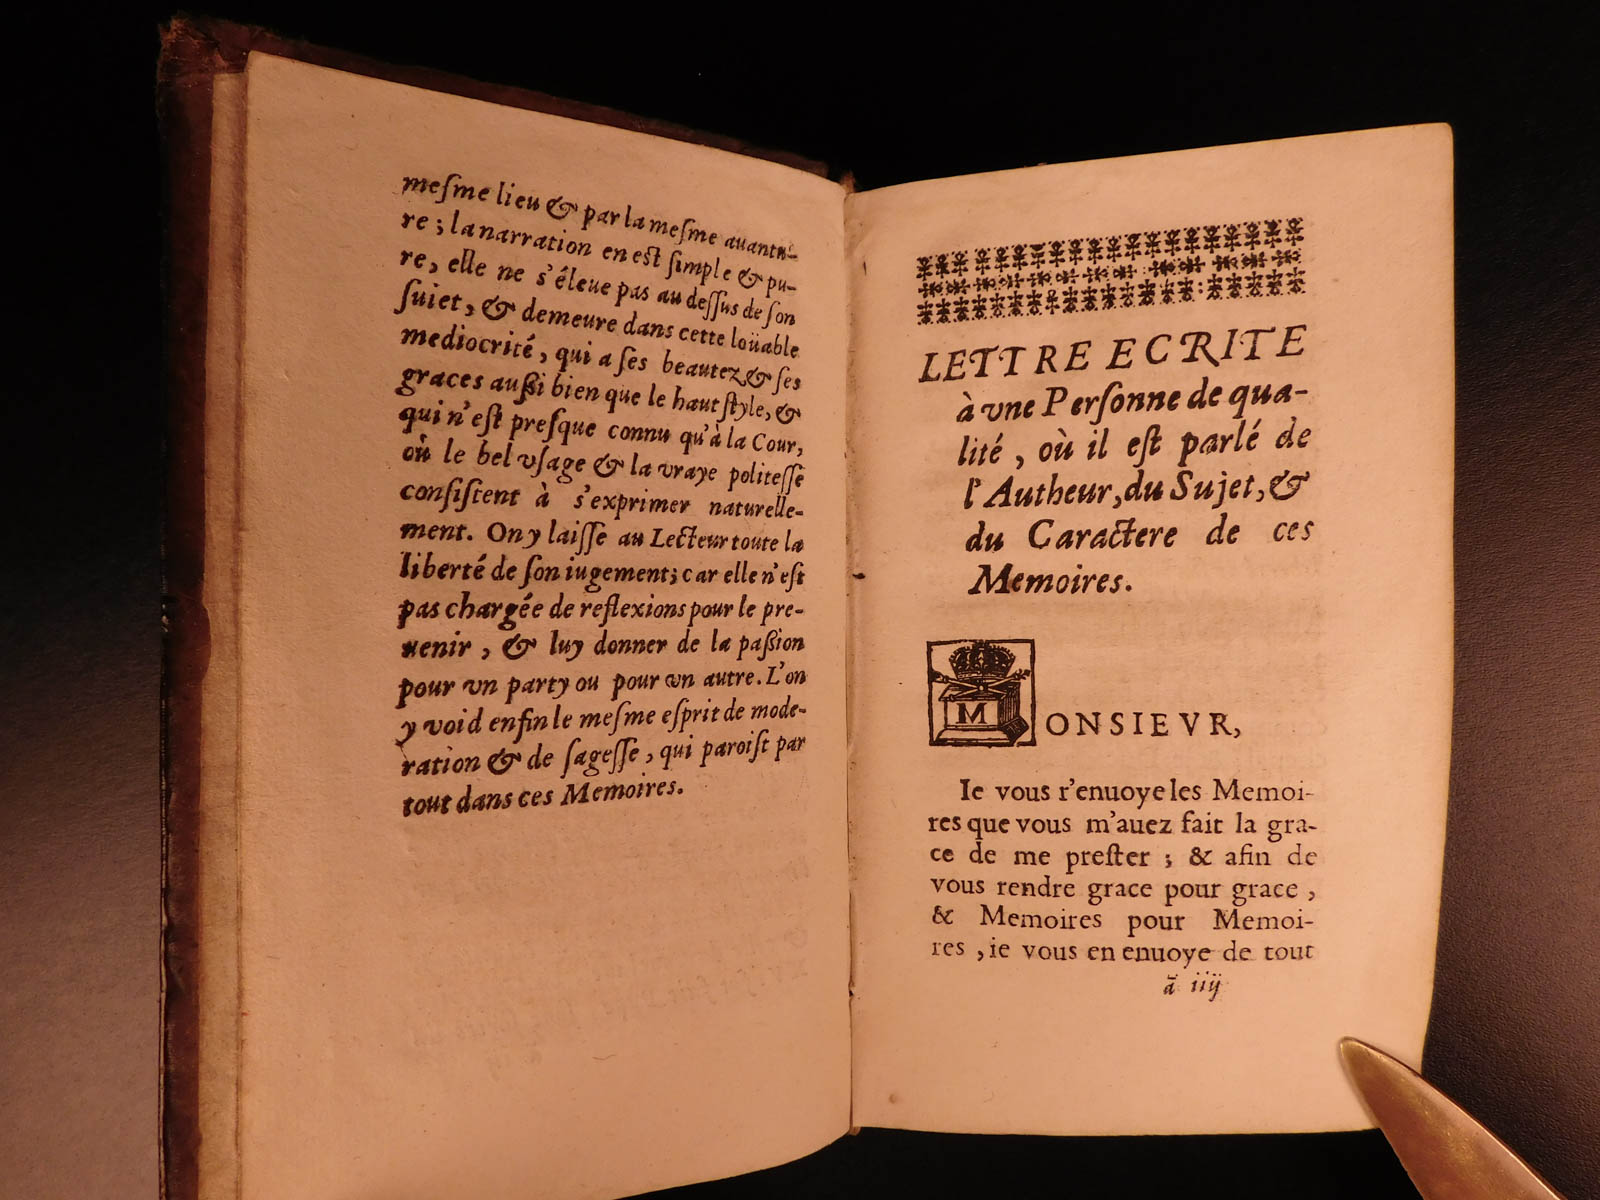 meſme lieu & par la meſme auantu-
re ; la narration en est ſimple & pu-
re, elle ne s'éleue pas au deſſus de ſon
ſuiet, & demeure dans cette loüable
mediocrité, qui a ſes beautez & ſes
graces auſſi bien que le haut ſtyle, &
qui n'eſt preſque connu qu'à la Cour,
où le bel vſage & la vraye politeſſe
conſiſtent à s'exprimer naturelle-
ment. On y laiſſe au Lecteur toute la
liberté de ſon iugement; car elle n'eſt
pas chargée de reflexions pour le pre-
uenir, & luy donner de la paßion
pour vn party ou pour vn autre. L'on
y void enfin le meſme eſprit de mode-
ration & de ſageſſe, qui paroiſt par
tout dans ces Memoires.
LETTRE ECRITE
à vne Perſonne de qua-
lité, où il eſt parlé de
l'Autheur, du Sujet, &
du Caractere de ces
Memoires.
MONSIEVR,
Ie vous r'enuoye les Memoi-
res que vous m'auez fait la gra-
ce de me preſter ; & afin de
vous rendre grace pour grace,
& Memoires pour Memoi-
res, ie vous en enuoye de tout
ã iiij